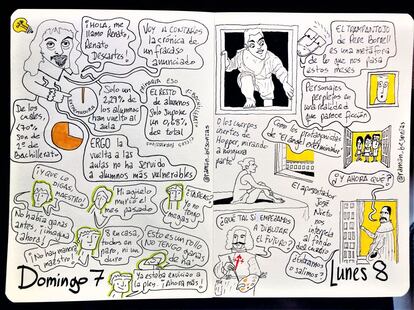 ¡HOLA, ME
LLAMO RENATO,
RENATO
DESCARTES!
VOY A CONTAROS
LA CRÓNICA DE
UN FRACASO
ANUNCIADO
Solo un
2,29% de los
alumnos han
vuelto al
aula
EL RESTO
de alumnos
Solo Supone
un 0,68%
del total
De los
cuales
(70%
son de
2º de
Bachillerato
ERGO la
vuelta a las
aulas no ha servido
a alumnos más vulnerables
¡Y QUE LO
DIGAS,
MAESTRO!
Mi agüelo
murió el
mes pasado
¿TAREAS?
Yo no
tengo
No había ganas
antes, ¡imagina
ahora!
En casa,
todos en
paro, ni
un duro
Esto es un rollo
NO TENGO
ganas
de na'
¡No hay manera
maestro!
Ya estaba enviciao a
la play. ¡Ahora más!
Domingo 7
@ramon_besonias
EL TRAMPANTOJO
de Pere Borrell
es una metáfora
de lo que nos pasa
estos meses
Personajes
perpetuos en
una realidad
que parece ficción
O los cuerpos
inertes de
Hopper, mirando
a ninguna
parte
Como los protagonistas
de El ángel exterminador
@ramon_besonias
¿Y AHORA QUÉ?
¿QUÉ TAL SI EMPEZAMOS
A DIBUJAR
EL FUTURO?
El apesentador
José
Nieto nos
interpela
al fondo
del cuadro
¿Entramos
o salimos?
Lunes 8